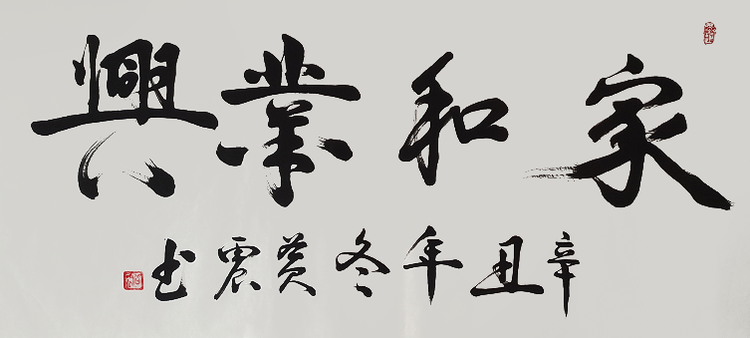 家和業興
辛丑年冬黄震书